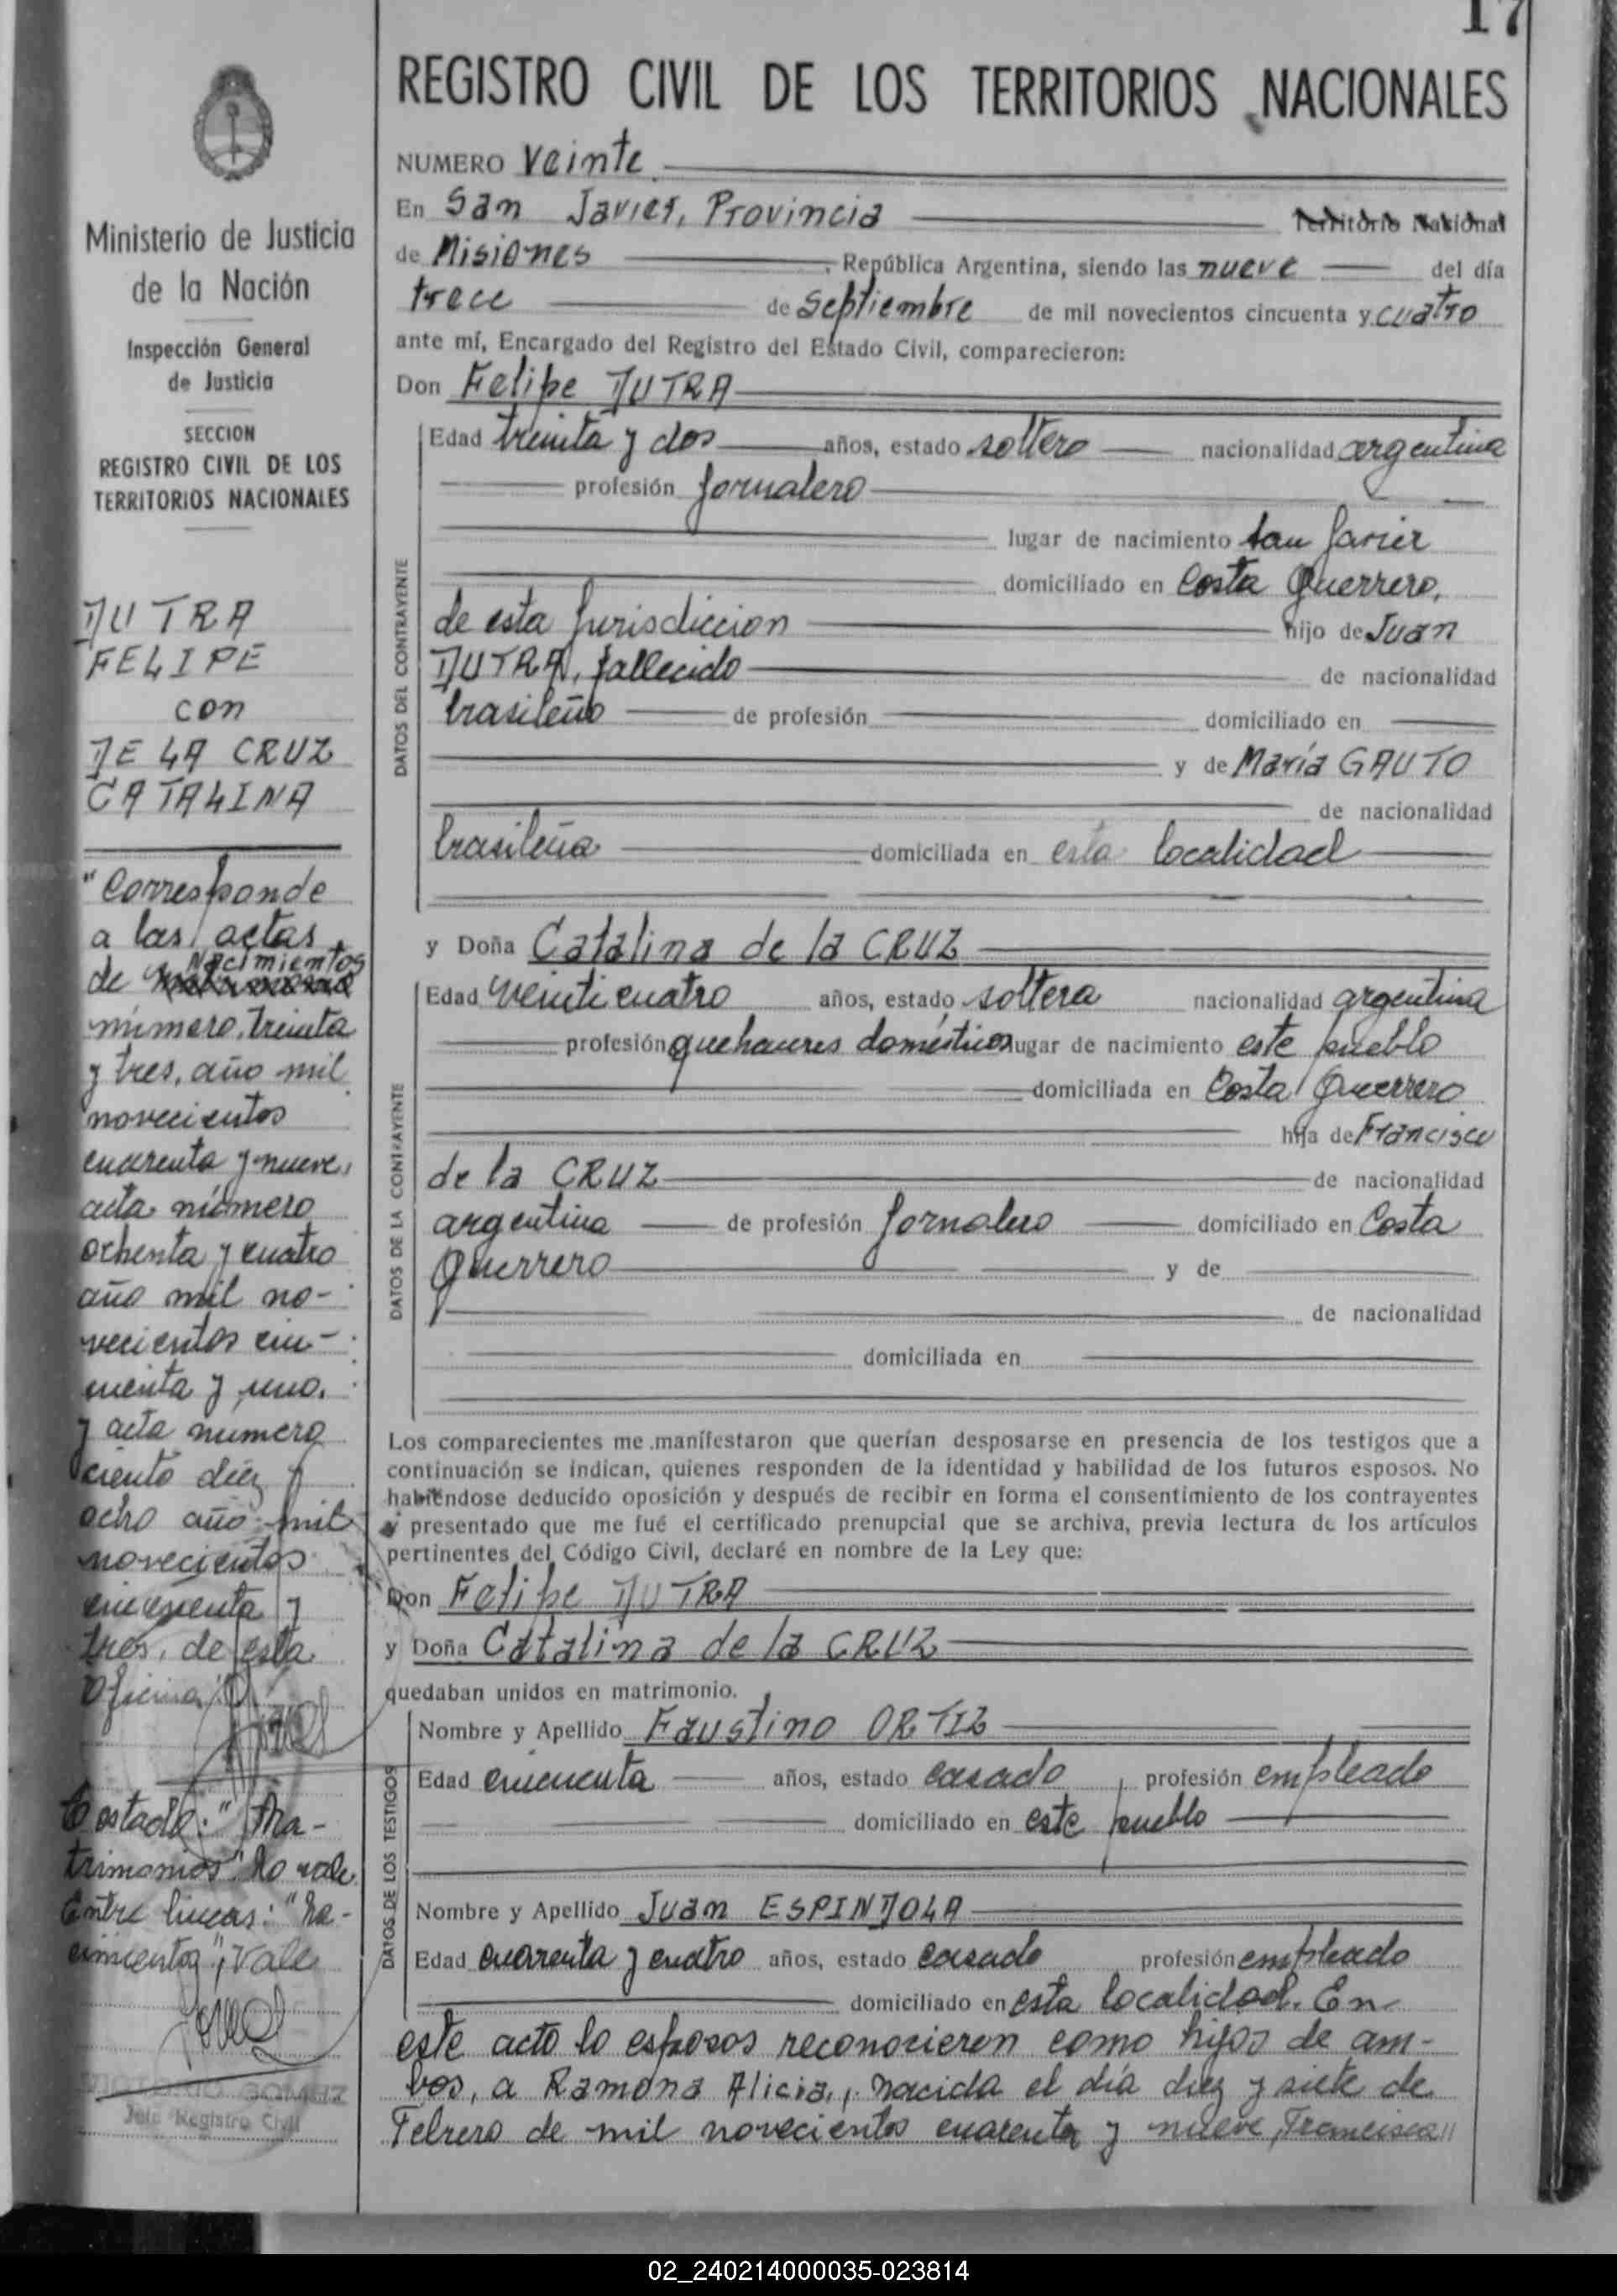 17
REGISTRO CIVIL DE LOS TERRITORIOS NACIONALES
Ministerio de Justicia
de la Nación
Inspección General
de Justicia
SECCION
REGISTRO CIVIL DE LOS
TERRITORIOS NACIONALES
DUTRA
FELIPE
con
DE LA CRUZ
CATALINA
"Corresponde
a las actas
Nacimientos
de matrimonios
número, treinta
y tres, año mil
novecientos
cuarenta y nueve,
acta número
ochenta y cuatro
año mil no-
vecientos cin-
cuenta y uno.
y acta numero
ciento diez y
ocho año mil
novecientos
cincuenta y
tres, de esta
Oficina
Testado: "Ma-
trimonios" No vale
Entre lineas: "Na-
cimientos", Vale
GOMEZ
Jefe Registro Civil
NUMERO Veinte
En San Javier, Provincia Territorio Nacional
de Misiones , República Argentina, siendo las nueve del día
trece de Septiembre de mil novecientos cincuenta y cuatro
ante mí, Encargado del Registro del Estado Civil, comparecieron:
Don Felipe DUTRA
DATOS DEL CONTRAYENTE
Edad treinta y dos años, estado soltero nacionalidad argentina
profesión Jornalero
lugar de nacimiento San Javier
domiciliado en Costa Guerrero,
de esta Jurisdiccion hijo de Juan
DUTRA, fallecido de nacionalidad
brasileño de profesión domiciliado en
y de María GAUTO
de nacionalidad
brasileña domiciliada en esta localidad
y Doña Catalina de la CRUZ
DATOS DE LA CONTRAYENTE
Edad veinticuatro años, estado soltera nacionalidad argentina
profesión quehaceres domésticos lugar de nacimiento este pueblo
domiciliada en Costa Guerrero
hija de Francisco
de la CRUZ de nacionalidad
argentina de profesión Jornalero domiciliado en Costa
Guerrero y de
de nacionalidad
domiciliada en
Los comparecientes me manifestaron que querían desposarse en presencia de los testigos que a
continuación se indican, quienes responden de la identidad y habilidad de los futuros esposos. No
habiéndose deducido oposición y después de recibir en forma el consentimiento de los contrayentes
y presentado que me fué el certificado prenupcial que se archiva, previa lectura de los artículos
pertinentes del Código Civil, declaré en nombre de la Ley que:
Don Felipe DUTRA
y Doña Catalina de la CRUZ
quedaban unidos en matrimonio.
DATOS DE LOS TESTIGOS
Nombre y Apellido Faustino ORTIZ
Edad cincuenta años, estado casado profesión empleado
domiciliado en este pueblo
Nombre y Apellido Juan ESPINDOLA
Edad cuarenta y cuatro años, estado casado profesión empleado
domiciliado en esta localidad. En
este acto lo esposos reconocieron como hijos de am-
bos, a Ramona Alicia, nacida el día diez y siete de
Febrero de mil novecientos cuarenta y nueve, Francisca //
02_240214000035-023814